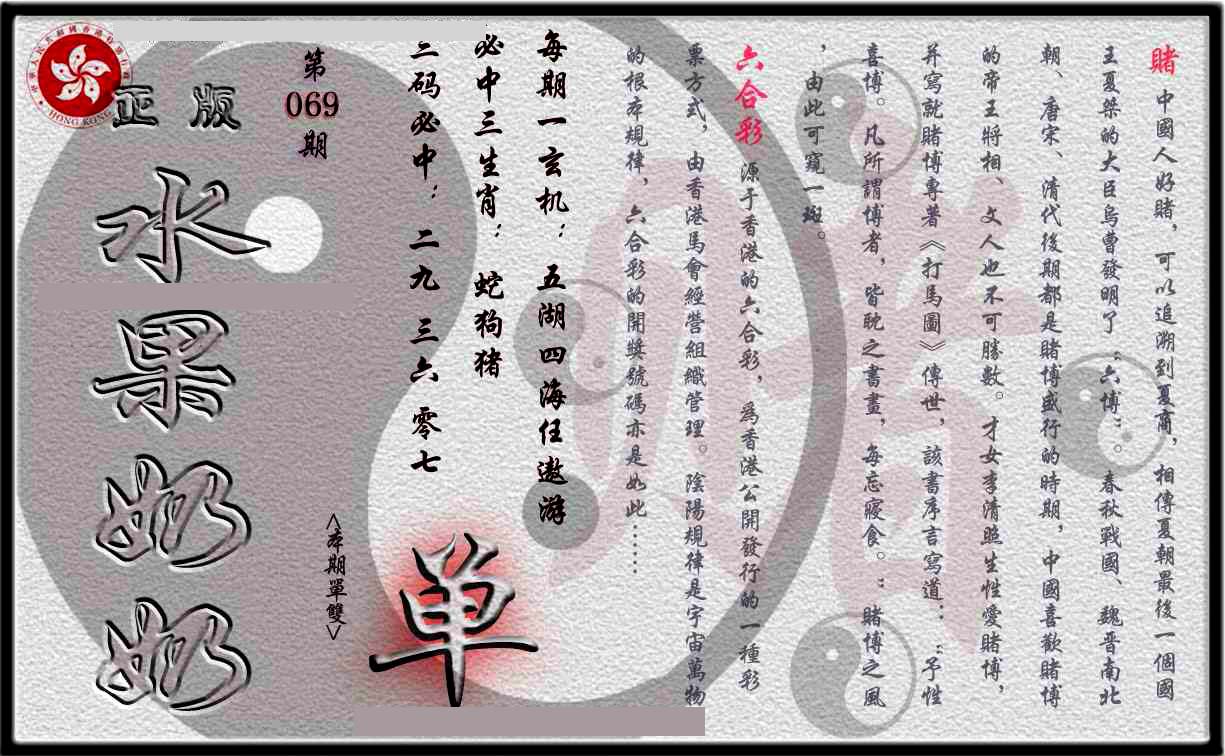 賭 中國人好賭，可以追溯到夏商，相傳夏朝最後一個國
王夏桀的大臣烏曹發明了“六博”。春秋戰國、魏晋南北
朝、唐宋、清代後期都是賭博盛行的時期，中國喜歡賭博
的帝王將相、文人也不可勝數。才女李清照生性愛賭博，
并寫就賭博專著《打馬圖》傳世，該書序言寫道：“予性
喜博。凡所謂博者，皆耽之晝書，每忘寢食。”賭博之風
，由此可窺一斑。
六合彩 源于香港的六合彩，爲香港公開發行的一種彩
票方式，由香港馬會經營組織管理。陰陽規律是宇宙萬物
的根本規律，六合彩的開獎號碼亦是如此……
每期一玄机：五湖四海任遨游
必中三生肖：蛇狗猪
三码必中：二九 三六 零七
第069期
<本期單雙>
单
正版
水果奶奶
HONG KONG